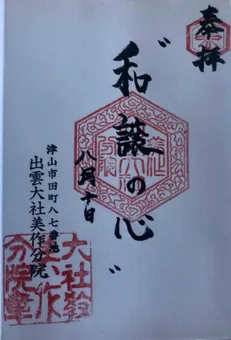 奉拝
〝和譲の心〟
八月十日
津山市田町八七番地
出雲大社美作分院
大社教
美作
分院章